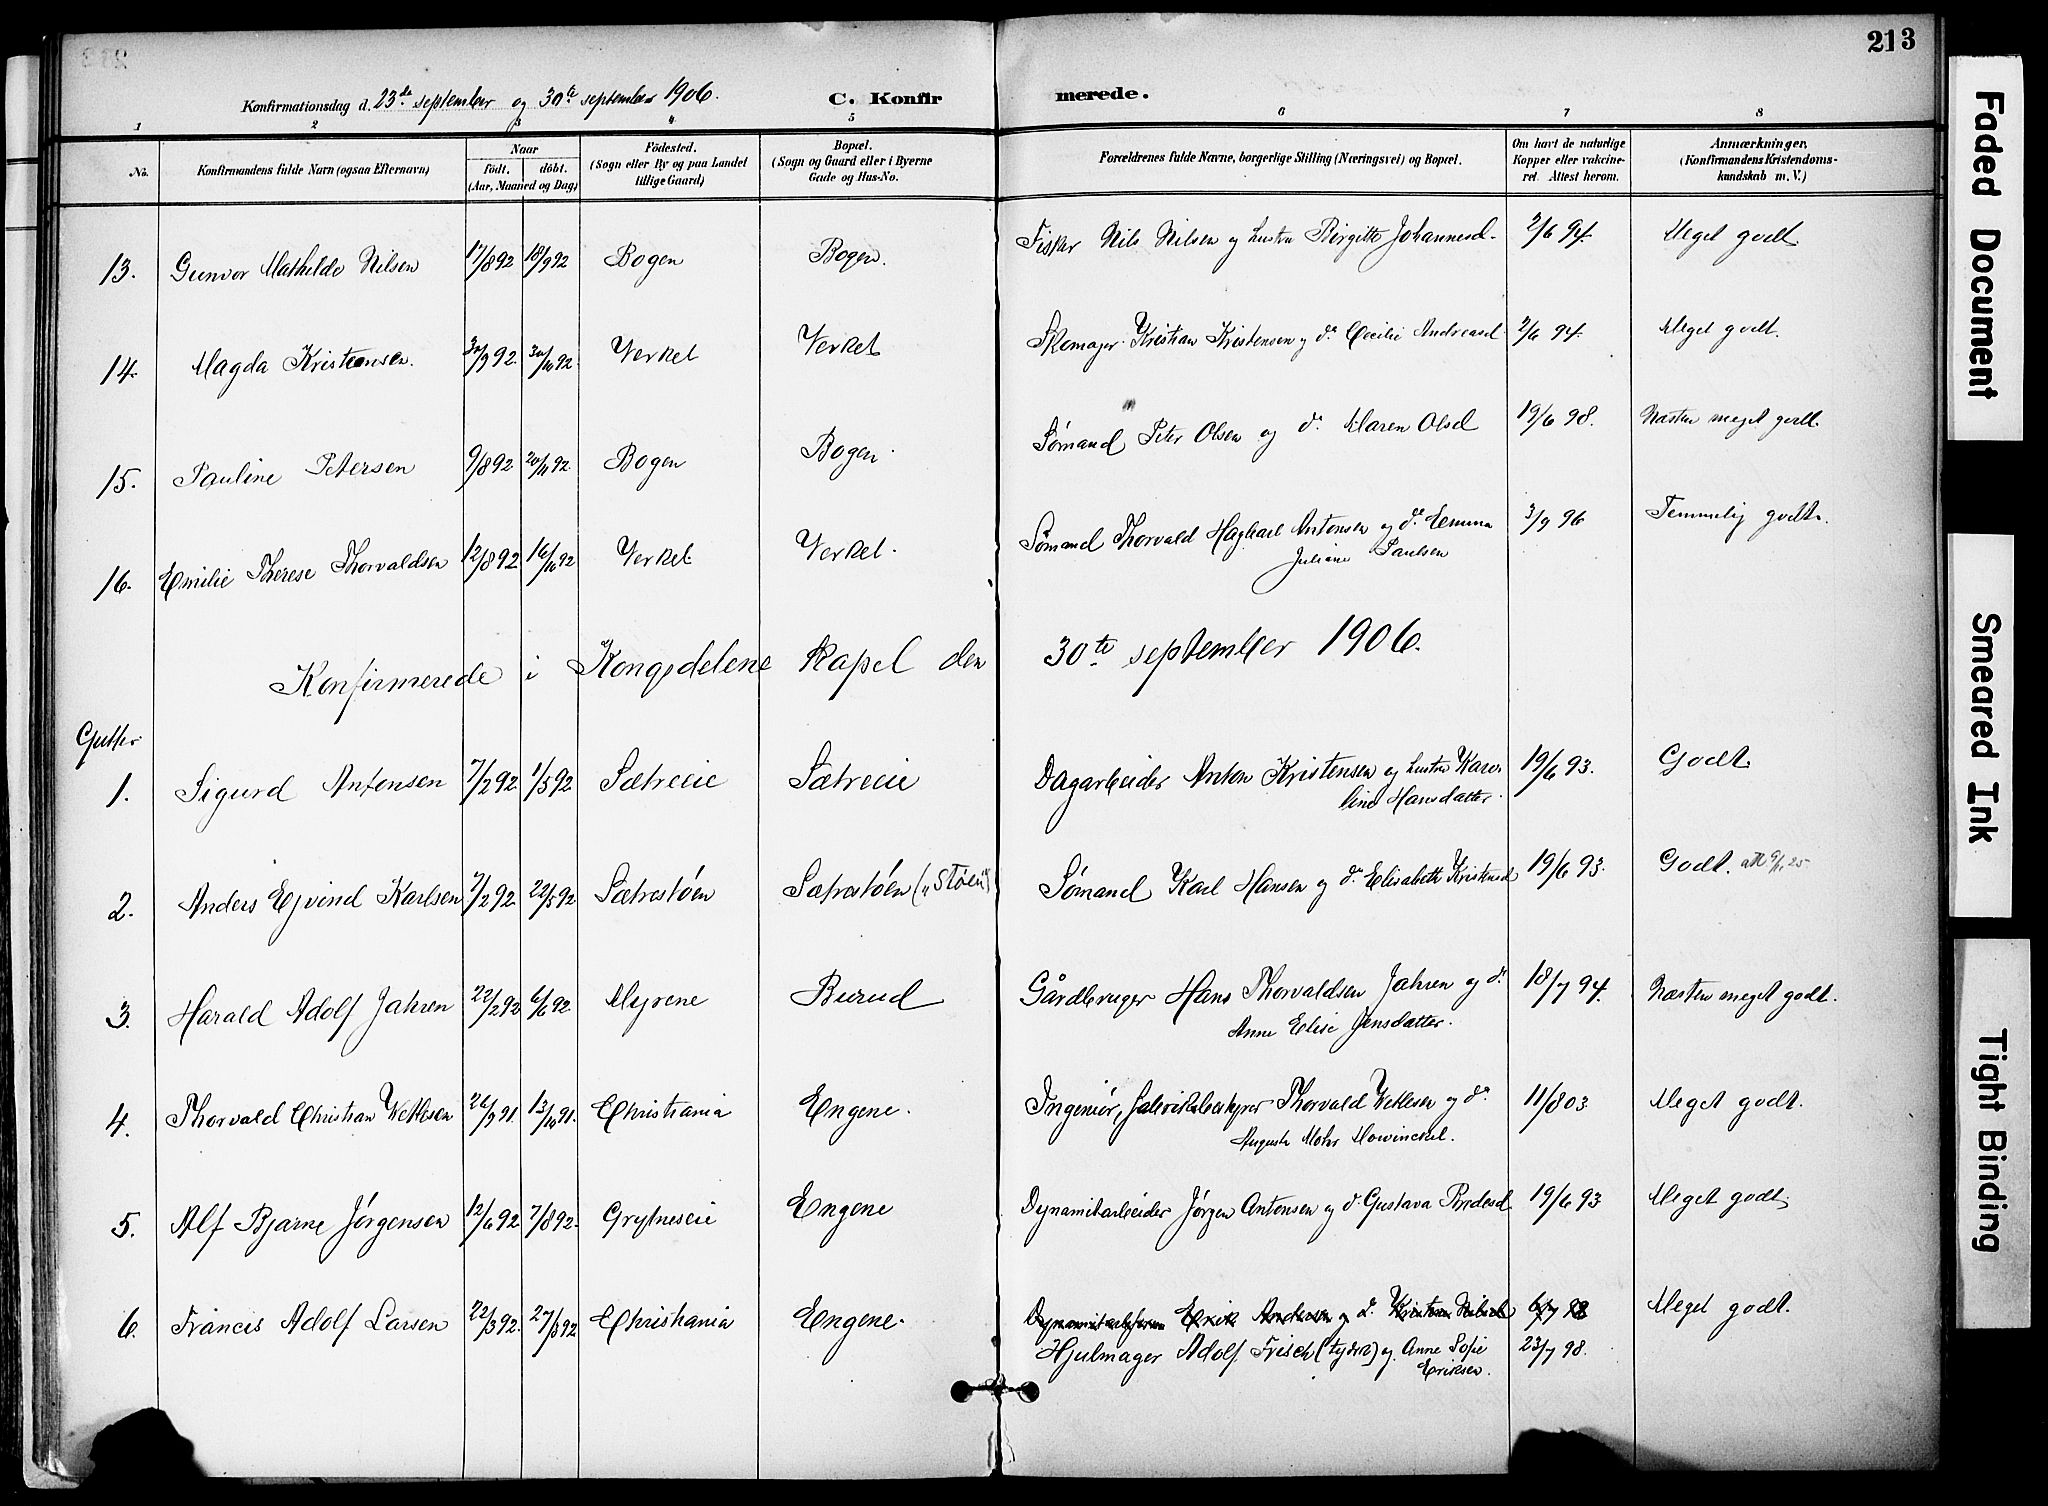 213
Konfirmationsdag d. 23de september og 30te september 1906. C. Konfirmerede.
1 2 3 4 5 6 7 8
No. Konfirmandens fulde Navn (ogsaa Efternavn) Naar født. døbt. (Aar, Maaned og Dag) Fødested. (Sogn eller By og paa Landet tillige Gaard) Bopæl. (Sogn og Gaard eller i Byerne Gade og Hus-No. Forældrenes fulde Navne, borgerlige Stilling (Næringsvei) og Bopæl. Om havt de naturlige Kopper eller vakcineret. Attest herom. Anmærkninger, (Konfirmandens Kristendomskundskab m. V.)
13. Gunvor Mathilde Nilsen 17/8 92 18/9 92 Bogen Bogen. Fisker Nils Nilsen og hustru Birgitte Johannesd. 2/6 94. Meget godt
14. Magda Kristensen. 30/9 92. 30/10 92. Verket Verket Skomager Kristian Kristensen og do Cecilie Andreasd. 2/6 94. Meget godt.
15. Pauline Petersen 9/8 92 20/11 92. Bogen Bogen. Sømand Peter Olsen og do Maren Olsd 19/6 98. Næsten meget godt.
16. Emilie Therese Thorvaldsen 12/8 92 16/10 92 Verket Verket. Sømand Thorvald Hagbael Antonsen og do Emma 3/9 96 Temmelig godt.
Juliane Paulsen
Konfirmerede i Kongsdelene kapel den 30te september 1906.
Gutter
1. Sigurd Antonsen 7/2 92 1/5 92 Sætreeie Sætreeie Dagarbeider Anton Kristensen og hustru Karo- 19/6 93. Godt.
line Hansdatter.
2. Anders Ejvind Karlsen 7/2 92 22/5 92 Sætrestøen Sætrestøen („Støen") Sømand Karl Hansen og do Elisabeth Kristensd 19/6 93. Godt.
3. Harald Adolf Jahren 22/2 92 6/6 92. Myrene Burud Gårdbruger Hans Thorvaldsen Jahren og do 18/7 94. Næsten meget godt.
Anne Elise Jensdatter.
4. Thorvald Christian Wetlesen 26/9 91. 13/10 91. Christiania Engene. Ingeniør, fabrikbestyrer Thorvald Wetlesen og do 11/8 03. Meget godt.
Augusta Mohr Howinckel.
5. Alf Bjarne Jørgensen 12/6 92 7/8 92. Grytneseie Engene Dynamitarbeider Jørgen Antonsen og do Gustava Bredesd 19/6 93 Meget godt
6. Francis Adolf Larsen 22/3 92. 27/3 92 Christiania Engene. Dynamitarbeider Erik Andersen og do Kristine Nilsd 6/7 98 Meget godt.
Hjulmager Adolf Frisch (tysker) og Anne Sofie 23/7 98.
Eriksen.
Faded Document
Smeared Ink
Tight Binding